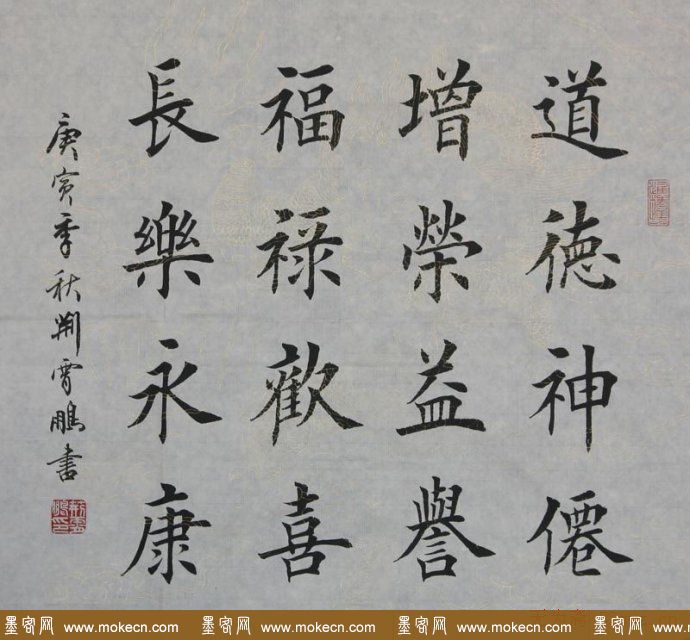 道德神僊
增榮益譽
福禄歡喜
長樂永康
庚寅季秋荆霄鵬書
墨客网 www.mokecn.com 墨客网 www.mokecn.com 墨客网 www.mokecn.com 墨客网 www.mokecn.com